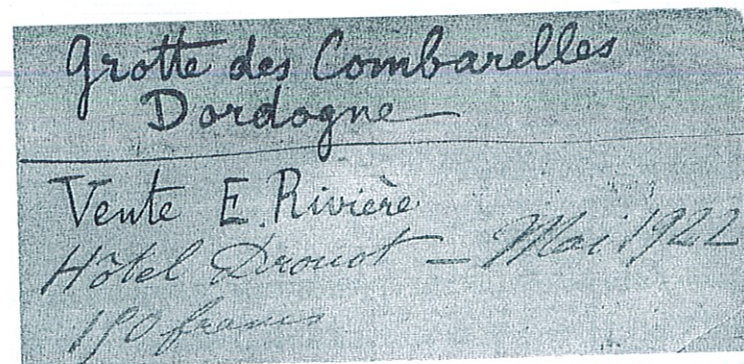 Grotte des Combarelles
Dordogne —
Vente E. Rivière
Hôtel Drouot — Mai 1922
francs